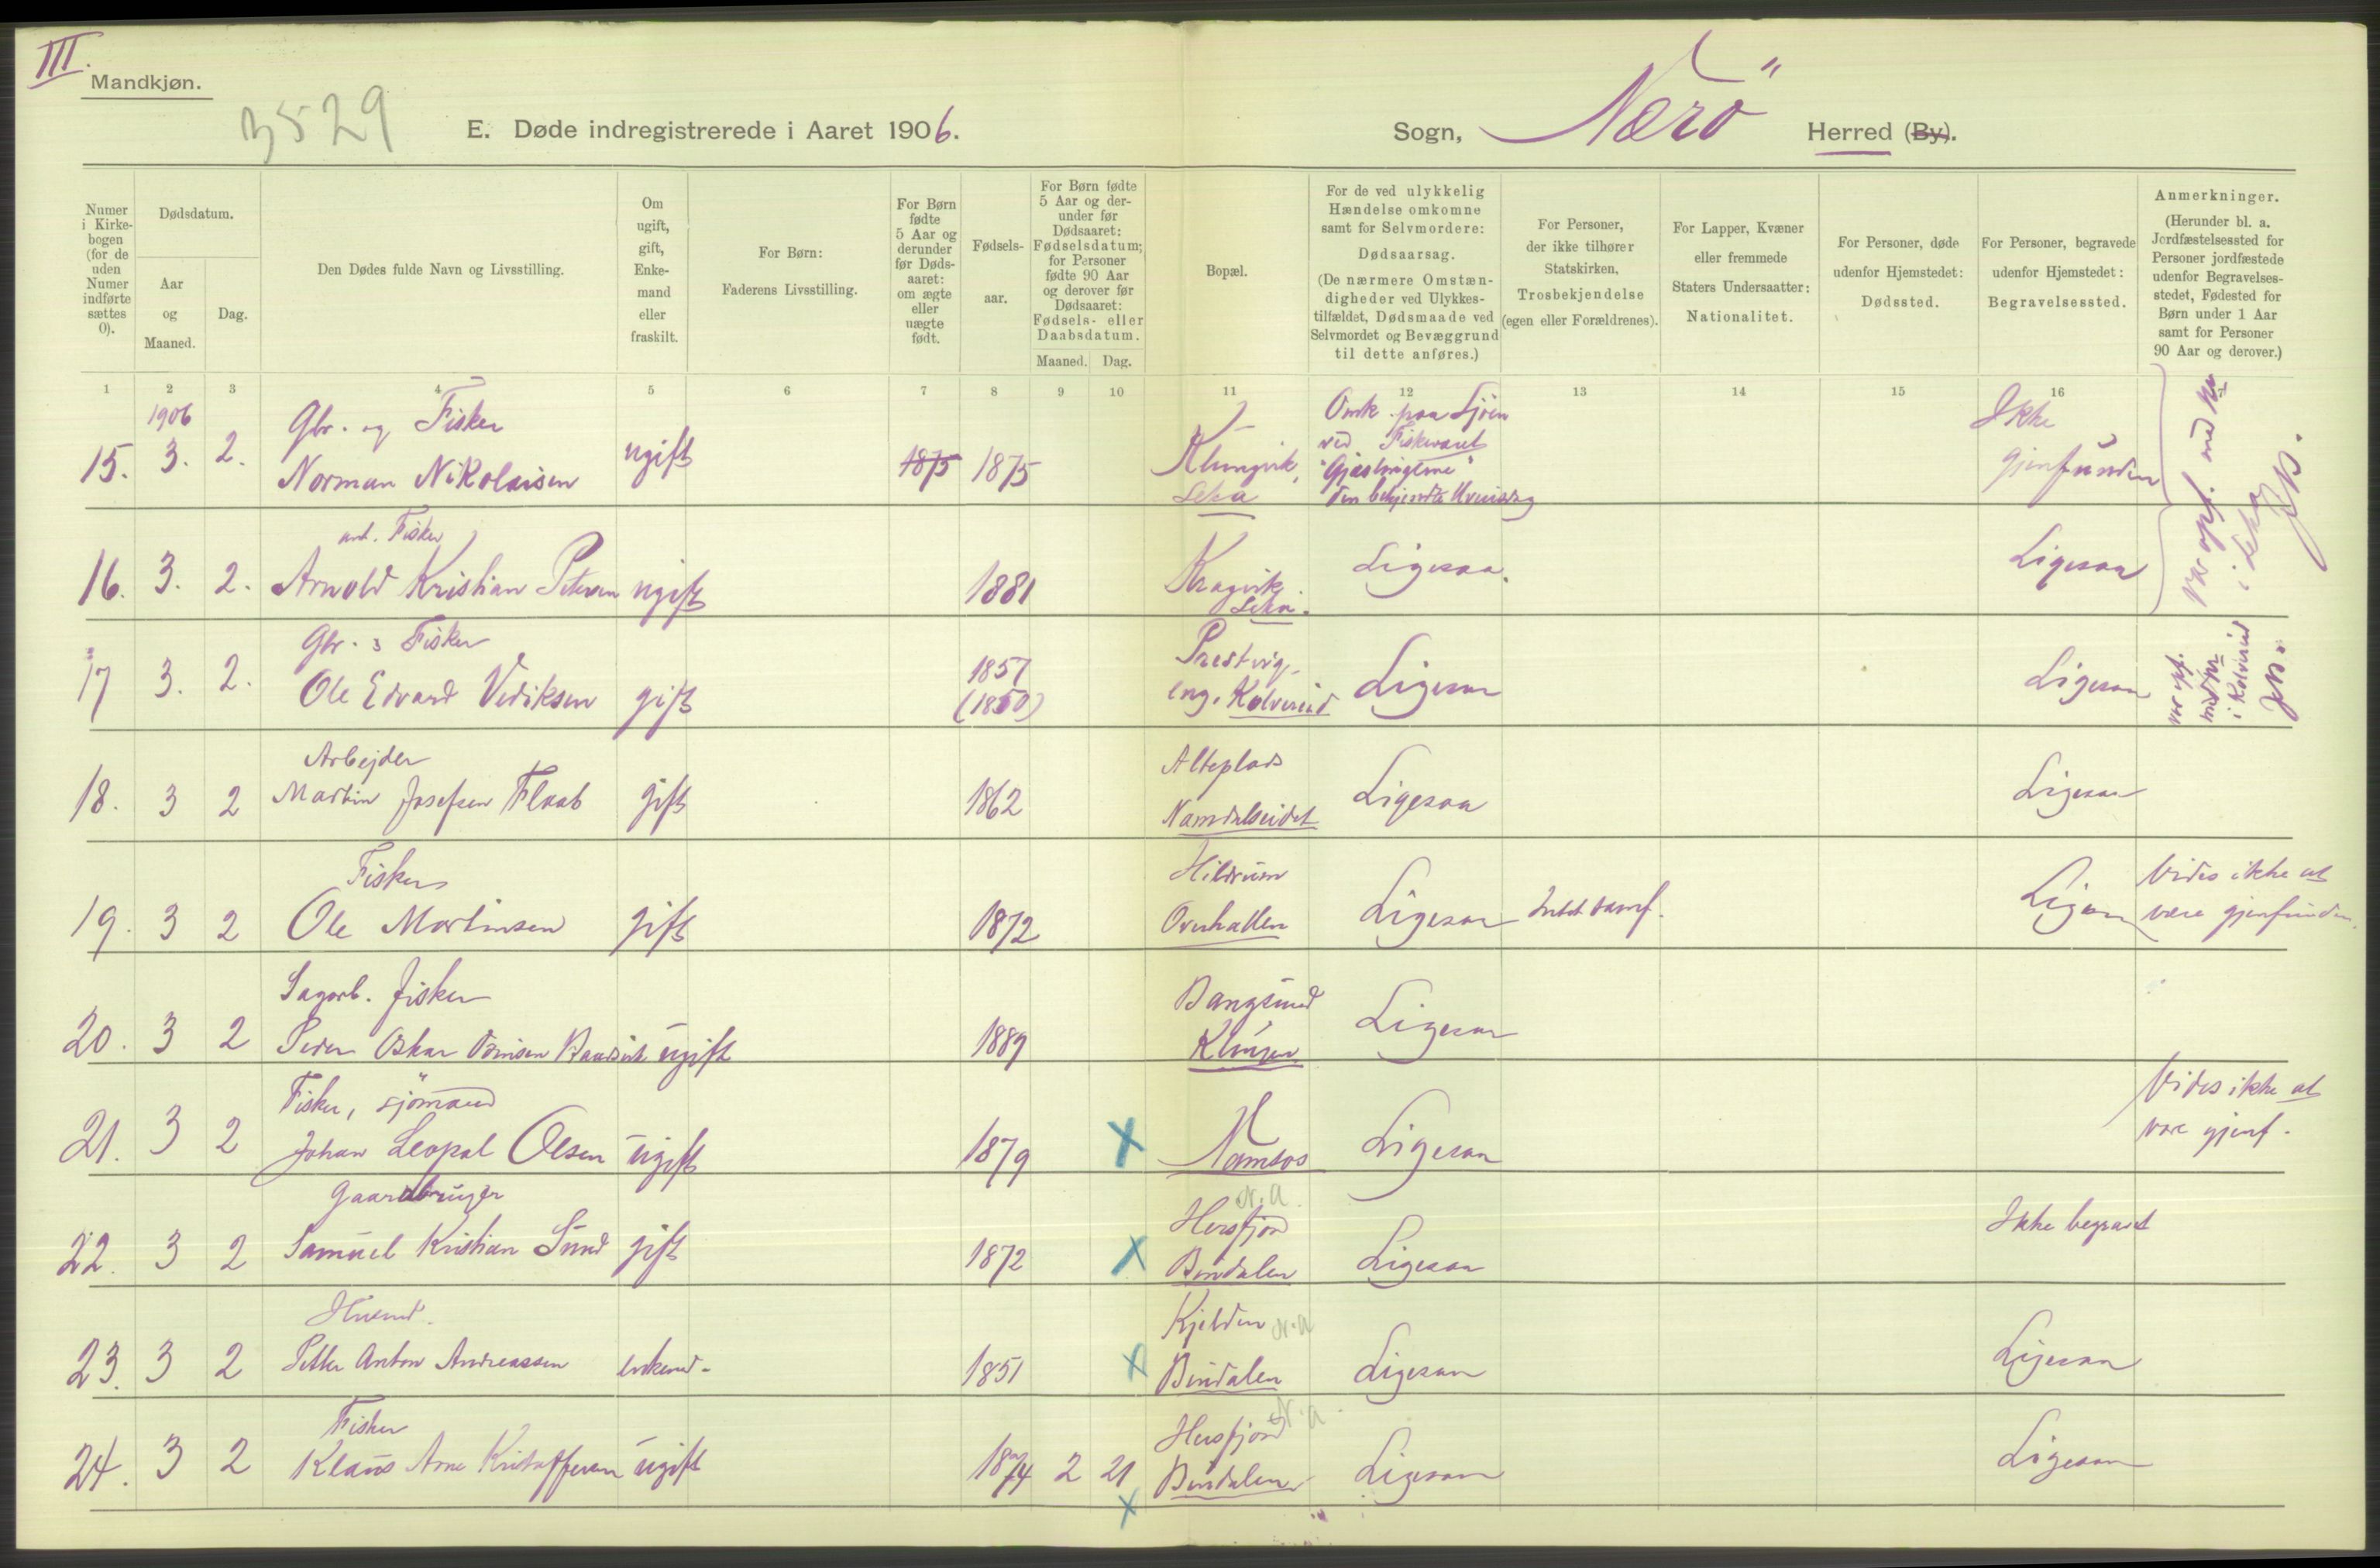 III.
Mandkjøn.
3529
E. Døde indregistrerede i Aaret 1906.
Sogn, Nærö Herred (By).
Numer i Kirkebogen (for de uden Numer indførte sættes 0).
Dødsdatum.
Aar og Maaned.
Dag.
Den Dødes fulde Navn og Livsstilling.
Om ugift, gift, Enkemand eller fraskilt.
For Børn: Faderens Livsstilling.
For Børn fødte 5 Aar og derunder før Dødsaaret: om ægte eller uægte født.
Fødselsaar.
For Børn fødte 5 Aar og derunder før Dødsaaret: Fødselsdatum; for Personer fødte 90 Aar og derover før Dødsaaret: Fødsels- eller Daabsdatum.
Maaned. Dag.
Bopæl.
For de ved ulykkelig Hændelse omkomne samt for Selvmordere: Dødsaarsag. (De nærmere Omstændigheder ved Ulykkestilfældet, Dødsmaade ved Selvmordet og Bevæggrund til dette anføres.)
For Personer, der ikke tilhører Statskirken, Trosbekjendelse (egen eller Forældrenes).
For Lapper, Kvæner eller fremmede Staters Undersaatter: Nationalitet.
For Personer, døde udenfor Hjemstedet: Dødssted.
For Personer, begravede udenfor Hjemstedet: Begravelsessted.
Anmerkninger. (Herunder bl. a. Jordfæstelsessted for Personer jordfæstede udenfor Begravelsesstedet, Fødested for Børn under 1 Aar samt for Personer 90 Aar og derover.)
1 2 3 4 5 6 7 8 9 10 11 12 13 14 15 16
1906
Gbr. og Fisker
Omk. paa Sjöen
Ikke
ved Fiskeværet
15. 3. 2. Norman Nikolaisen ugift 1875 1875 Klungvik, "Gjæslingerne" gjenfunden
Leka
den bekjendte
Fisker
16. 3. 2. Arnold Kristian Petersen ugift 1881 Kragvik Ligesaa. Ligesaa
Leka.
var opf. med
i Leka
Gbr. & Fisker
1857
17 3. 2. Ole Edvard Vediksen gift (1850) Ligesaa Ligesaa
Kolvereid
var opf.
i Kolvereid
Arbejder
Alteplads
18. 3 2 Martin Josefsen Flaat gift 1862 Namdalseidet Ligesaa Ligesaa
Fisker
Hildrum
Vides ikke at
19. 3 2 Ole Martinsen gift 1872 Overhallen Ligesaa Ligesaa være gjenfunden.
Sagarb. Fisker
Bangsund
20. 3 2 Peder Oskar ugift 1889 Klingen Ligesaa
Fisker, sjömand
Vides ikke at
21. 3 2 Johan Leopal Olsen ugift 1879 X Namsos Ligesaa være gjenf.
Gaardbruger
N. a.
22. 3 2 Samuel Kristian Sund gift 1872 X Bindalen Ligesaa Ikke begravet
Kjelden N. a
23. 3 2 Petter Anton Andreassen enkemd. 1851 X Bindalen Ligesaa Ligesaa
Fisker
N. a.
24. 3 2 Klaus Arne Kristoffersen ugift 1874 2 21 Bindalen Ligesaa Ligesaa
X